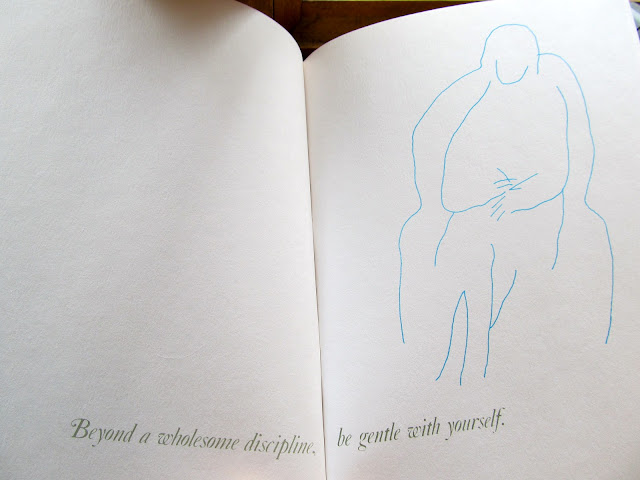 Beyond a wholesome discipline, be gentle with yourself.